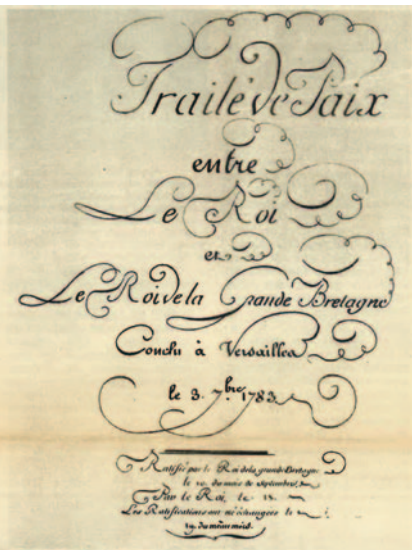 Traité de Paix
entre
Le Roi
et
Le Roi de la Grande Bretagne
Conclu à Versailles
le 3. 7.bre 1783
Ratifié par le Roi de la grande Bretagne
le 10. du mois de Septembre,
Par le Roi, le 18.
Les Ratifications ont été échangées le
19. du même mois.